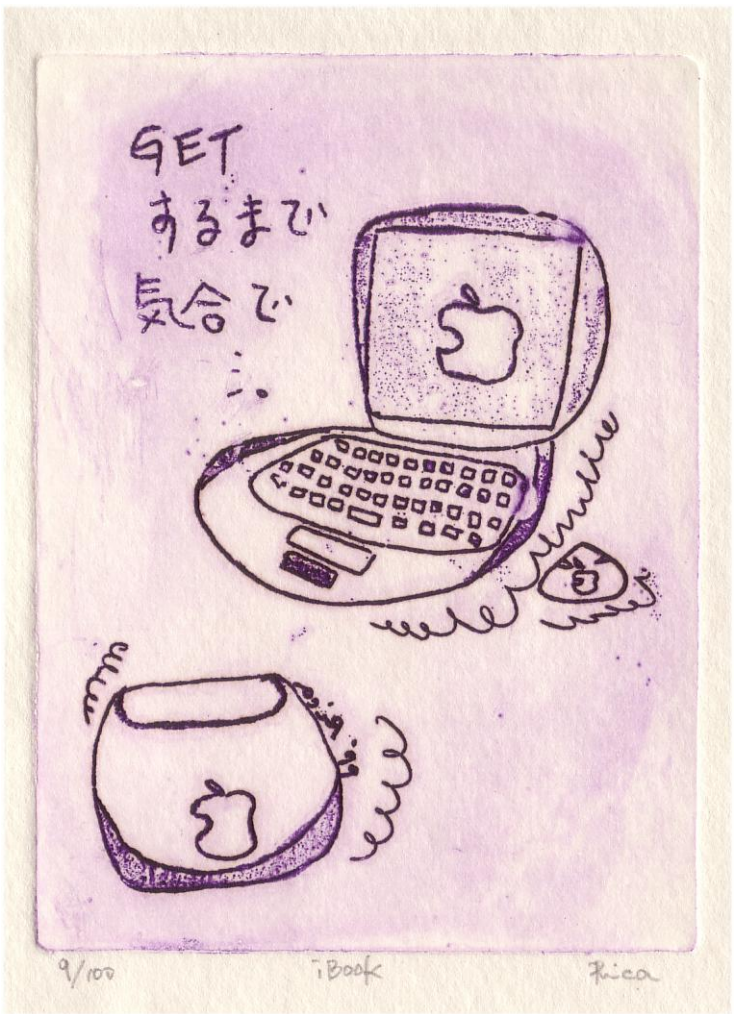 GET
するまで
気合で
9/100 iBook Rica